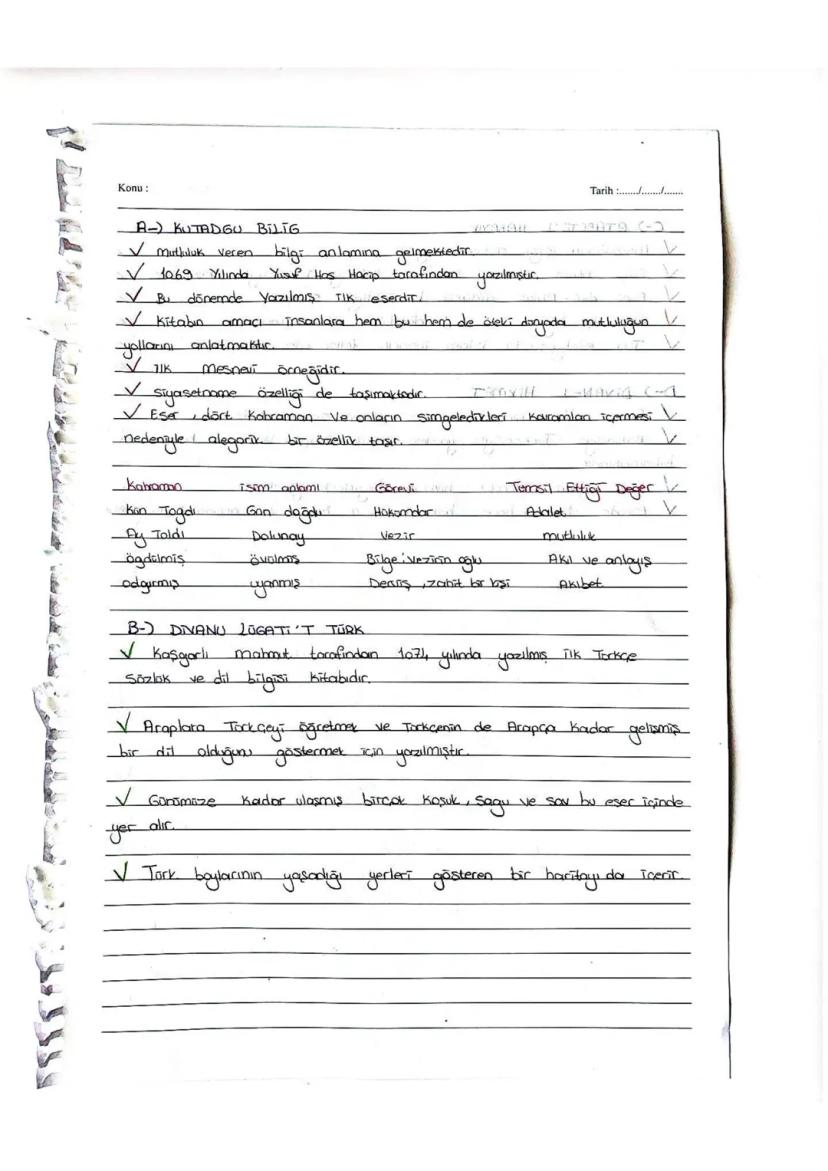 Konu :
Tarih :......./......./.......
A-) KUTADGU BİLİG
√ mutluluk veren bilgi anlamına gelmektedir.
√ 1069 Yılında Yusuf Has Hacip tarafından yazılmıştır.
√ Bu dönemde Yazılmış ilk eserdir.
√ Kitabın amacı insanlara hem bu hem de öteki dünyada mutluluğun
yollarını anlatmaktır.
√ ilk mesnevi örneğidir.
√ Siyasetname özelliği de taşımaktadır.
√ Eser, dört Kahraman Ve onların simgeledikleri kavramları içermesi
nedeniyle alegorik bir özellik taşır.
Kahraman isim anlamı Görevi Temsil Ettiği Değer
Kün Togdı Gün doğdu Hükümdar Adalet
Ay Toldı Dolunay Vezir mutluluk
ögdülmiş övülmüş Bilge: vezirin oğlu Akıl ve anlayış
odgurmış uyanmış Derviş, zahit bir kişi Akıbet
B-) DİVANU LÜGATİ'T TÜRK
√ Kaşgarlı mahmut tarafından 1074 yılında yazılmış ilk Türkçe
Sözlük ve dil bilgisi kitabıdır.
√ Araplara Türkçeyi öğretmek ve Türkçenin de Arapça kadar gelişmiş
bir dil olduğunu göstermek için yazılmıştır.
√ Günümüze kadar ulaşmış birçok koşuk, sagu ve sav bu eser içinde
yer alır.
√ Türk boylarının yaşadığı yerleri gösteren bir haritayı da içerir.